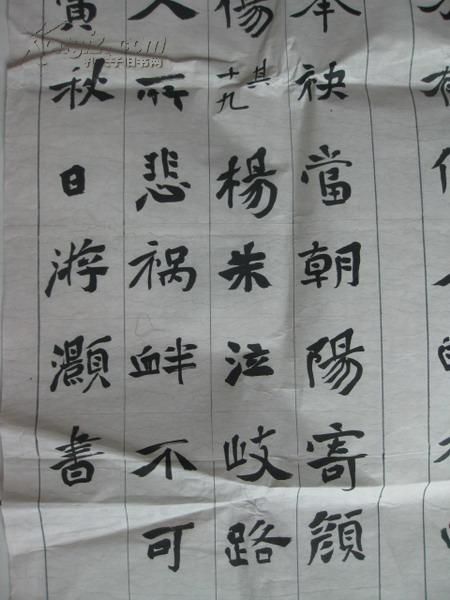 举袂當朝陽寄顏
傷其十九楊朱泣岐路
人所悲祸衅不可
寅秋日游灝書
孔夫子旧书网